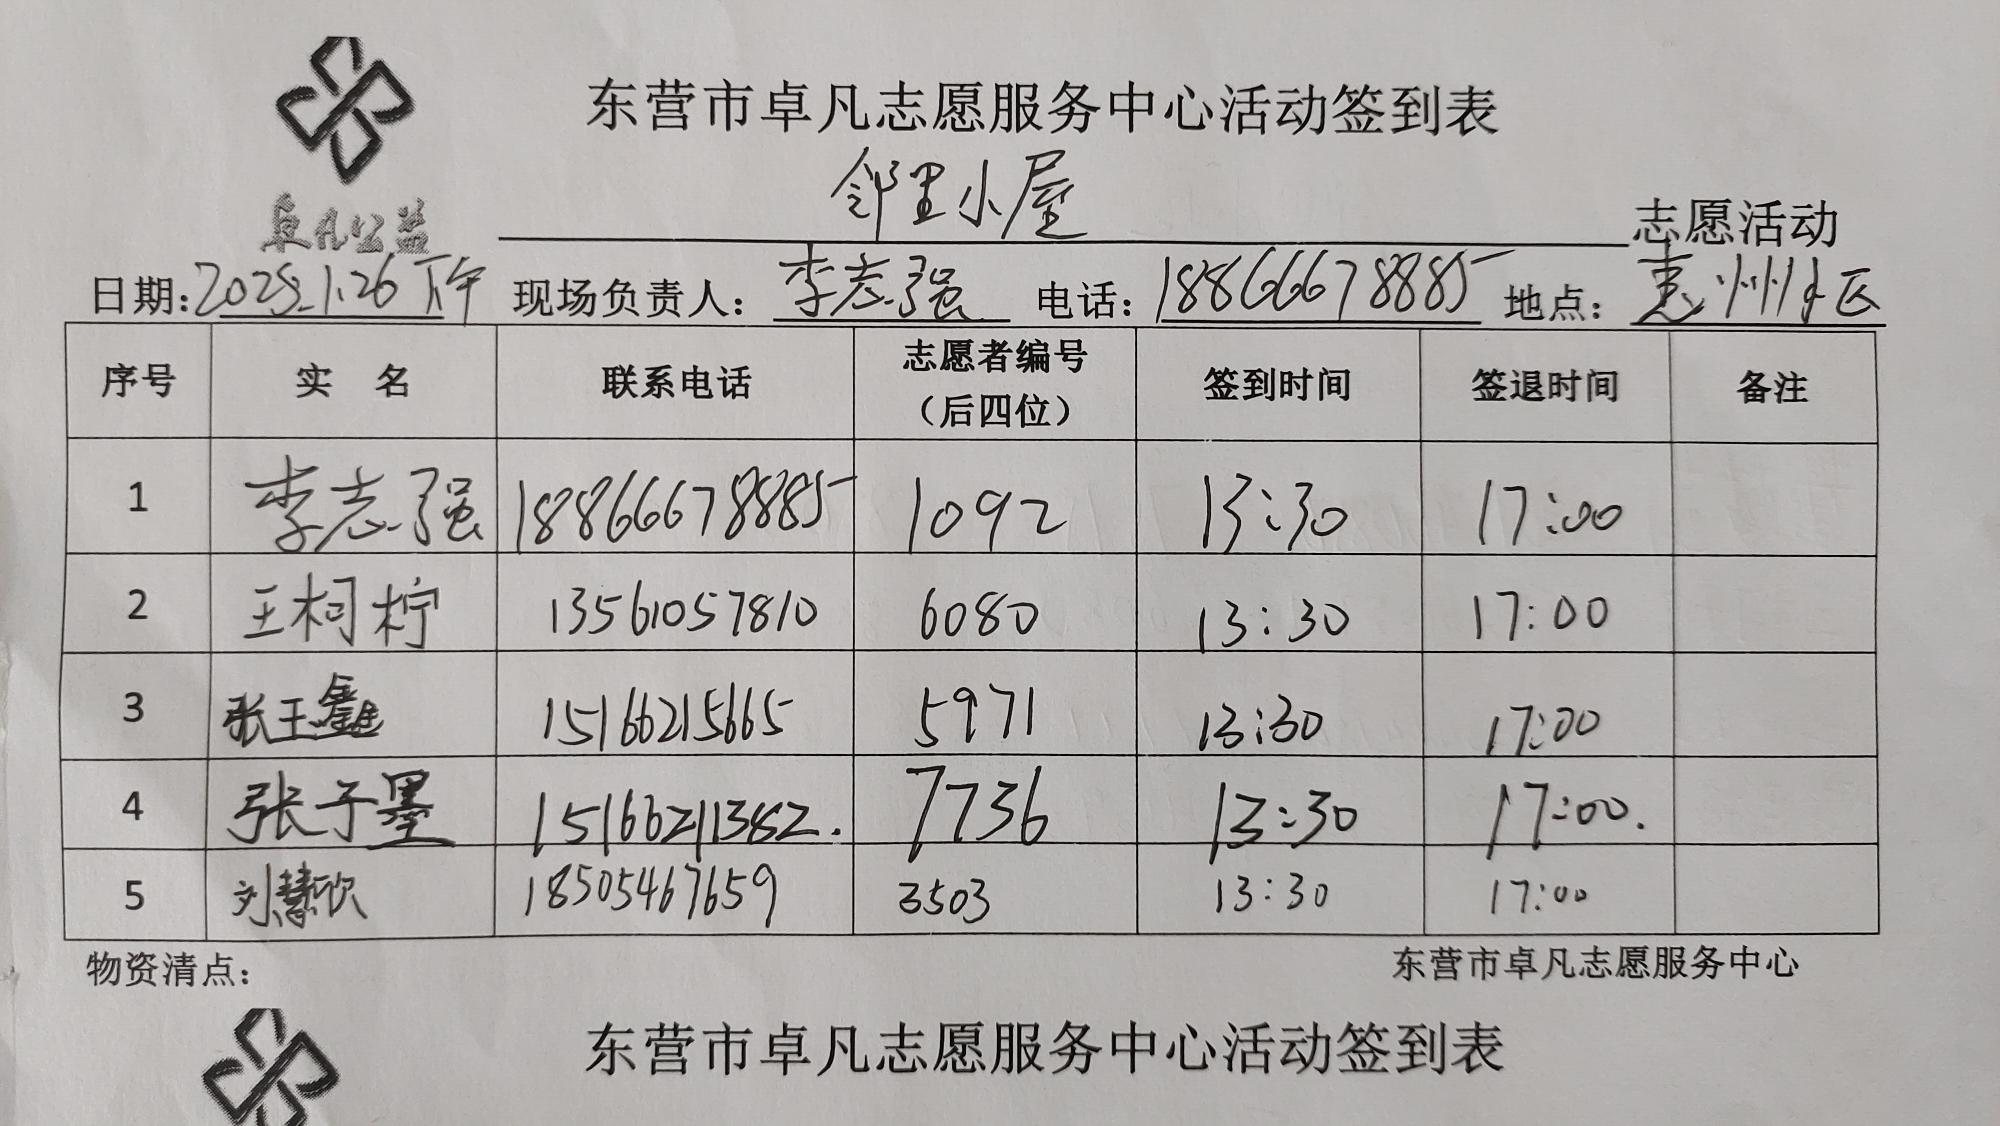 东营市卓凡志愿服务中心活动签到表
卓凡公益
邻里小屋 志愿活动
日期:2025.1.26下午 现场负责人:李志强 电话:18866678885 地点:惠州小区
序号 实 名 联系电话 志愿者编号(后四位) 签到时间 签退时间 备注
1 李志强 18866678885 1092 13:30 17:00
2 王柯柠 13561057810 6080 13:30 17:00
3 张王 15166215665 5971 13:30 17:00
4 张子墨 15166211382. 7736 13:30 17:00.
5 刘慧欣 18505467659 3503 13:30 17:00
物资清点: 东营市卓凡志愿服务中心
东营市卓凡志愿服务中心活动签到表